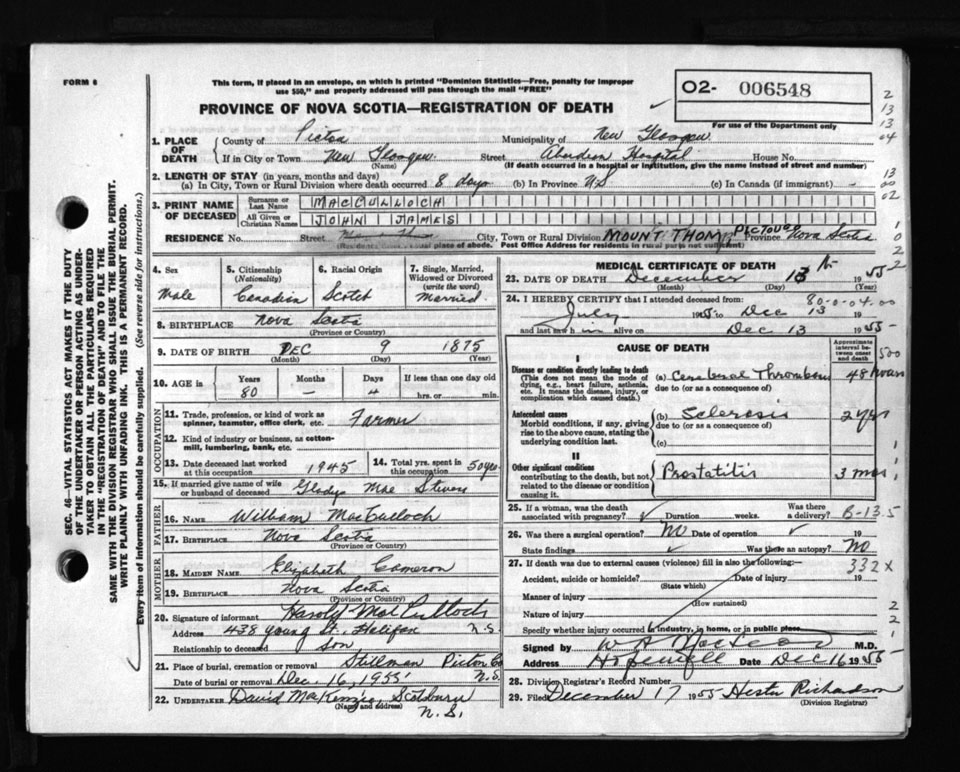 FORM 6
This form, if placed in an envelope, on which is printed "Dominion Statistics—Free, penalty for improper
use $50," and properly addressed will pass through the mail "FREE"
PROVINCE OF NOVA SCOTIA—REGISTRATION OF DEATH
O2- 006548
For use of the Department only
2
13
13
04
13
00
02
1
0
2
2
2
SEC. 46—VITAL STATISTICS ACT MAKES IT THE DUTY
OF THE UNDERTAKER OR PERSON ACTING AS UNDER-
TAKER TO OBTAIN ALL THE PARTICULARS REQUIRED
IN THE "REGISTRATION OF DEATH" AND TO FILE THE
SAME WITH THE DIVISION REGISTRAR WHO SHALL ISSUE THE BURIAL PERMIT.
WRITE PLAINLY WITH UNFADING INK. THIS IS A PERMANENT RECORD.
Every item of information should be carefully supplied. (See reverse side for instructions.)
1. PLACE OF DEATH
County of Pictou Municipality of New Glasgow
If in City or Town New Glasgow Street Aberdeen Hospital House No.
(Name) (If death occurred in a hospital or institution, give the name instead of street and number)
2. LENGTH OF STAY (in years, months and days)
(a) In City, Town or Rural Division where death occurred 8 days (b) In Province NS (c) In Canada (if immigrant) -
3. PRINT NAME OF DECEASED
Surname or Last Name MACCULLOCH
All Given or Christian Names JOHN JAMES
RESIDENCE No. Street City, Town or Rural Division MOUNT THOM PICTOU CO Province Nova Scotia
(Residence is usual place of abode. Post Office Address for residents in rural parts not sufficient)
4. Sex
Male
5. Citizenship (Nationality)
Canadian
6. Racial Origin
Scotch
7. Single, Married, Widowed or Divorced (write the word)
Married
8. BIRTHPLACE Nova Scotia
(Province or Country)
9. DATE OF BIRTH DEC 9 1875
(Month) (Day) (Year)
10. AGE in
Years Months Days If less than one day old
80 4 hrs. or min.
OCCUPATION
11. Trade, profession, or kind of work as spinner, teamster, office clerk, etc. Farmer
12. Kind of industry or business, as cotton-mill, lumbering, bank, etc.
13. Date deceased last worked at this occupation 1945
14. Total yrs. spent in this occupation 50 yrs
15. If married give name of wife or husband of deceased Gladys Mae Stevens
FATHER
16. NAME William MacCulloch
17. BIRTHPLACE Nova Scotia
(Province or Country)
MOTHER
18. MAIDEN NAME Elizabeth Cameron
19. BIRTHPLACE Nova Scotia
(Province or Country)
20. Signature of informant Harold MacCulloch
Address 438 Young St. Halifax N.S.
Relationship to deceased Son
21. Place of burial, cremation or removal Stillman Pictou Co
Date of burial or removal Dec. 16, 1955 N.S.
22. UNDERTAKER David MacKenzie, Scotsburn
(Name and address) N.S.
MEDICAL CERTIFICATE OF DEATH
23. DATE OF DEATH December 13 1955
(Month) (Day)
24. I HEREBY CERTIFY that I attended deceased from: 80-0-04.00
July 1955 to Dec 13 19
and last saw him alive on Dec 13 1955
CAUSE OF DEATH
Approximate interval between onset and death
500
I
Disease or condition directly leading to death
(This does not mean the mode of dying, e.g., heart failure, asthenia, etc. It means the disease, injury, or complication which caused death.)
(a) Cerebral Thrombosis 48 hours
due to (or as a consequence of)
Antecedent causes
Morbid conditions, if any, giving rise to the above cause, stating the underlying condition last.
(b) Sclerosis 2 yrs 1
due to (or as a consequence of)
(c)
II
Other significant conditions
contributing to the death, but not related to the disease or condition causing it.
Prostatitis 3 mos 1
25. If a woman, was the death associated with pregnancy? Duration weeks. Was there a delivery? B-13.5
26. Was there a surgical operation? No Date of operation 19
State findings Was there an autopsy? No
27. If death was due to external causes (violence) fill in also the following:— 332X
Accident, suicide or homicide? Date of injury 19
(State which)
Manner of injury
(How sustained)
Nature of injury
2
2
1
Specify whether injury occurred in industry, in home, or in public place
Signed by M.D.
Address Hopewell Date Dec 16 1955
28. Division Registrar's Record Number
29. Filed December 17 1955 Hester Richardson
(Division Registrar)